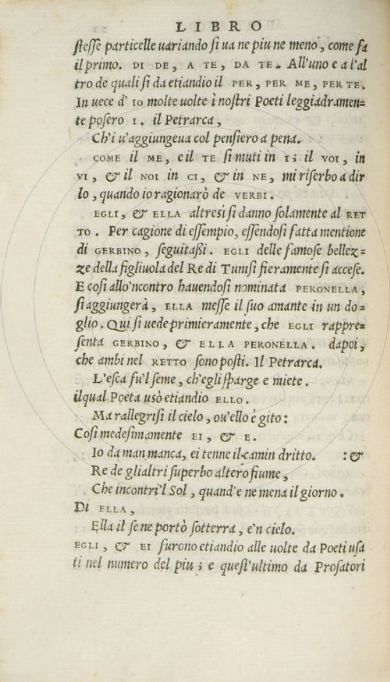 LIBRO
stesse particelle uariando si ua ne piu ne meno, come fa
il primo. DI DE, A TE, DA TE. All'uno e a l'al
tro de quali si da etiandio il PER, PER ME, PER TE.
In uece d' IO molte uolte i nostri Poeti leggiadramen-
te posero I. il Petrarca,
Ch'i u'aggiungeua col pensiero a pena.
COME il ME, e il TE si muti in I; il VOI, in
VI, & il NOI in CI, & in NE, mi riserbo a dir
lo, quando io ragionarò de VERBI.
EGLI, & ELLA altresi si danno solamente al RET
TO. Per cagione di essempio, essendosi fatta mentione
di GERBINO, seguitaßi. EGLI delle famose bellez-
ze della figliuola del Re di Tunisi fieramente si accese.
E cosi allo'ncontro hauendosi nominata PERONELLA,
si aggiungerà, ELLA messe il suo amante in un do-
glio. Qui si uede primieramente, che EGLI rappre-
senta GERBINO, & ELLA PERONELLA. dapoi,
che ambi nel RETTO sono posti. Il Petrarca.
L'esca fu'l seme, ch'egli sparge e miete.
ilqual Poeta usò etiandio ELLO.
Ma rallegrisi il cielo, ou'ello è gito:
Cosi medesimamente EI, & E.
Io da man manca, ei tenne il camin dritto. :&
Re de glialtri superbo altero fiume,
Che incontri'l Sol, quand'e ne mena il giorno.
Di ELLA,
Ella il se ne portò sotterra, e'n cielo.
EGLI, & EI furono etiandio alle uolte da Poeti usa
ti nel numero del piu; e quest'ultimo da Prosatori